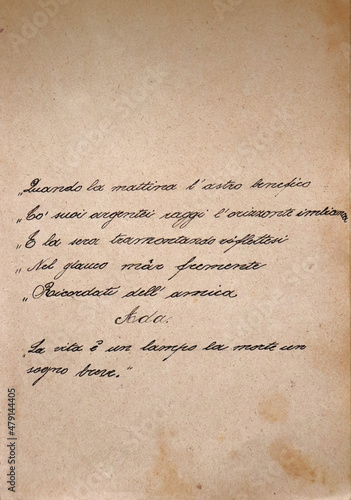 „Quando la mattina l'astro benefico
„Co' suoi argentei raggi l'orizzonte imbianca
„E la sera tramontando riflettesi
„Nel glauco mar fremente
„Ricordati dell'amica
Ada.
„La vita è un lampo la morte un
sogno breve."
Adobe Stock | #479144405